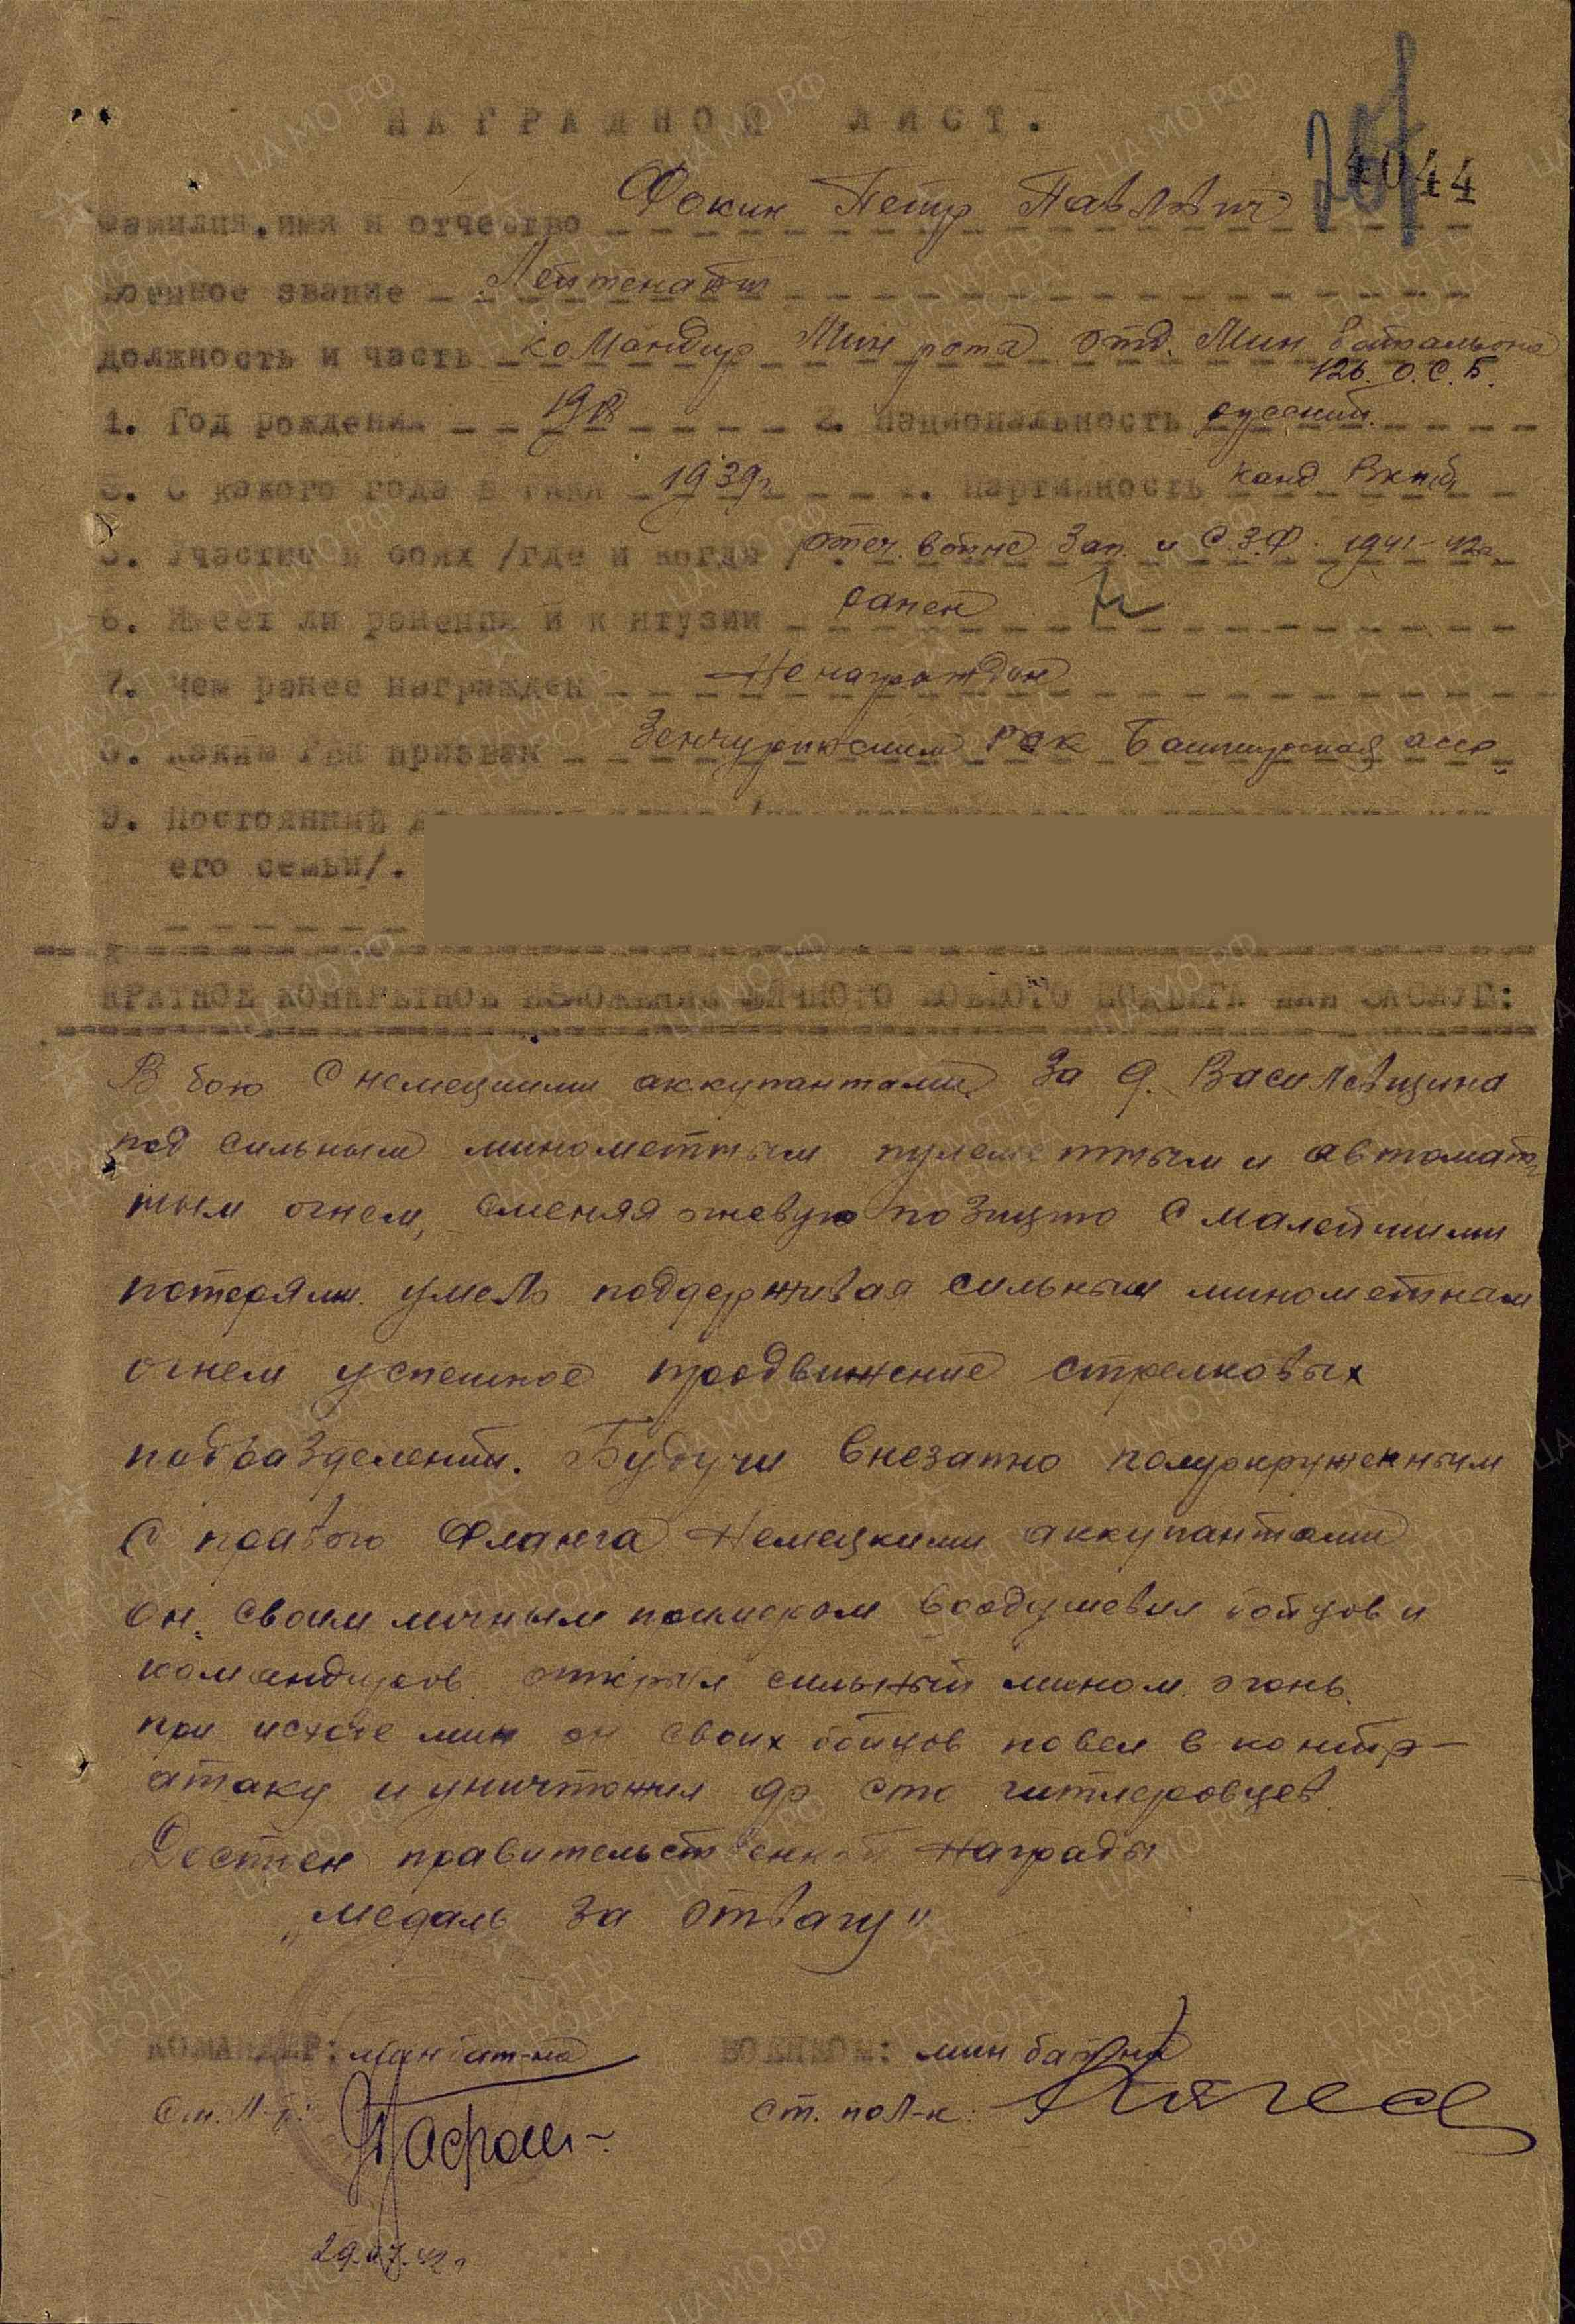 НАГРАДНОЙ ЛИСТ.
44
Фамилия, имя и отчество Фокин Петр Павлович
Военное звание Лейтенант
должность и часть командир Мин рота отд. Мин батальона
126. О.С.Б.
1. Год рождения 1918 2. Национальность русский.
3. С какого года в 1939г 4. Партийность канд Вкпб
5. Участие в боях /где и когда/ отеч. войне Зап. и С.З.Ф. 1941-42г.
6. Имеет ли ранения и контузии ранен
7. Чем ранее награжден Не награждён
8. Каким РВК призван РВК Башкирская асср.
9. Постоянный
его семьи/.
КРАТКОЕ КОНКРЕТНОЕ ИЗЛОЖЕНИЕ ЛИЧНОГО БОЕВОГО ПОДВИГА ИЛИ ЗАСЛУГ:
В бою с немецкими аккупантами за д. Василевщина
под сильным минометным пулеметным и автомат
ным огнем, сменяя огневую позицию с малейшими
потерями умело поддерживая сильным минометным
огнем успешное продвижение стрелковых
подразделений. Будучи внезапно полуокруженным
с правого Фланга Немецкими аккупантами
он, своим личным примером воодушевил бойцов и
командиров открыл сильный мином. огонь.
при исходе мин он своих бойцов повел в контр-
атаку и уничтожил до сто гитлеровцев.
Достоен правительственной Награды
„медаль за отвагу"
КОМАНДИР: мин бат-на ВОЕНКОМ: мин бат-на
Ст. Л-т: ст. пол-к:
29.07.42г